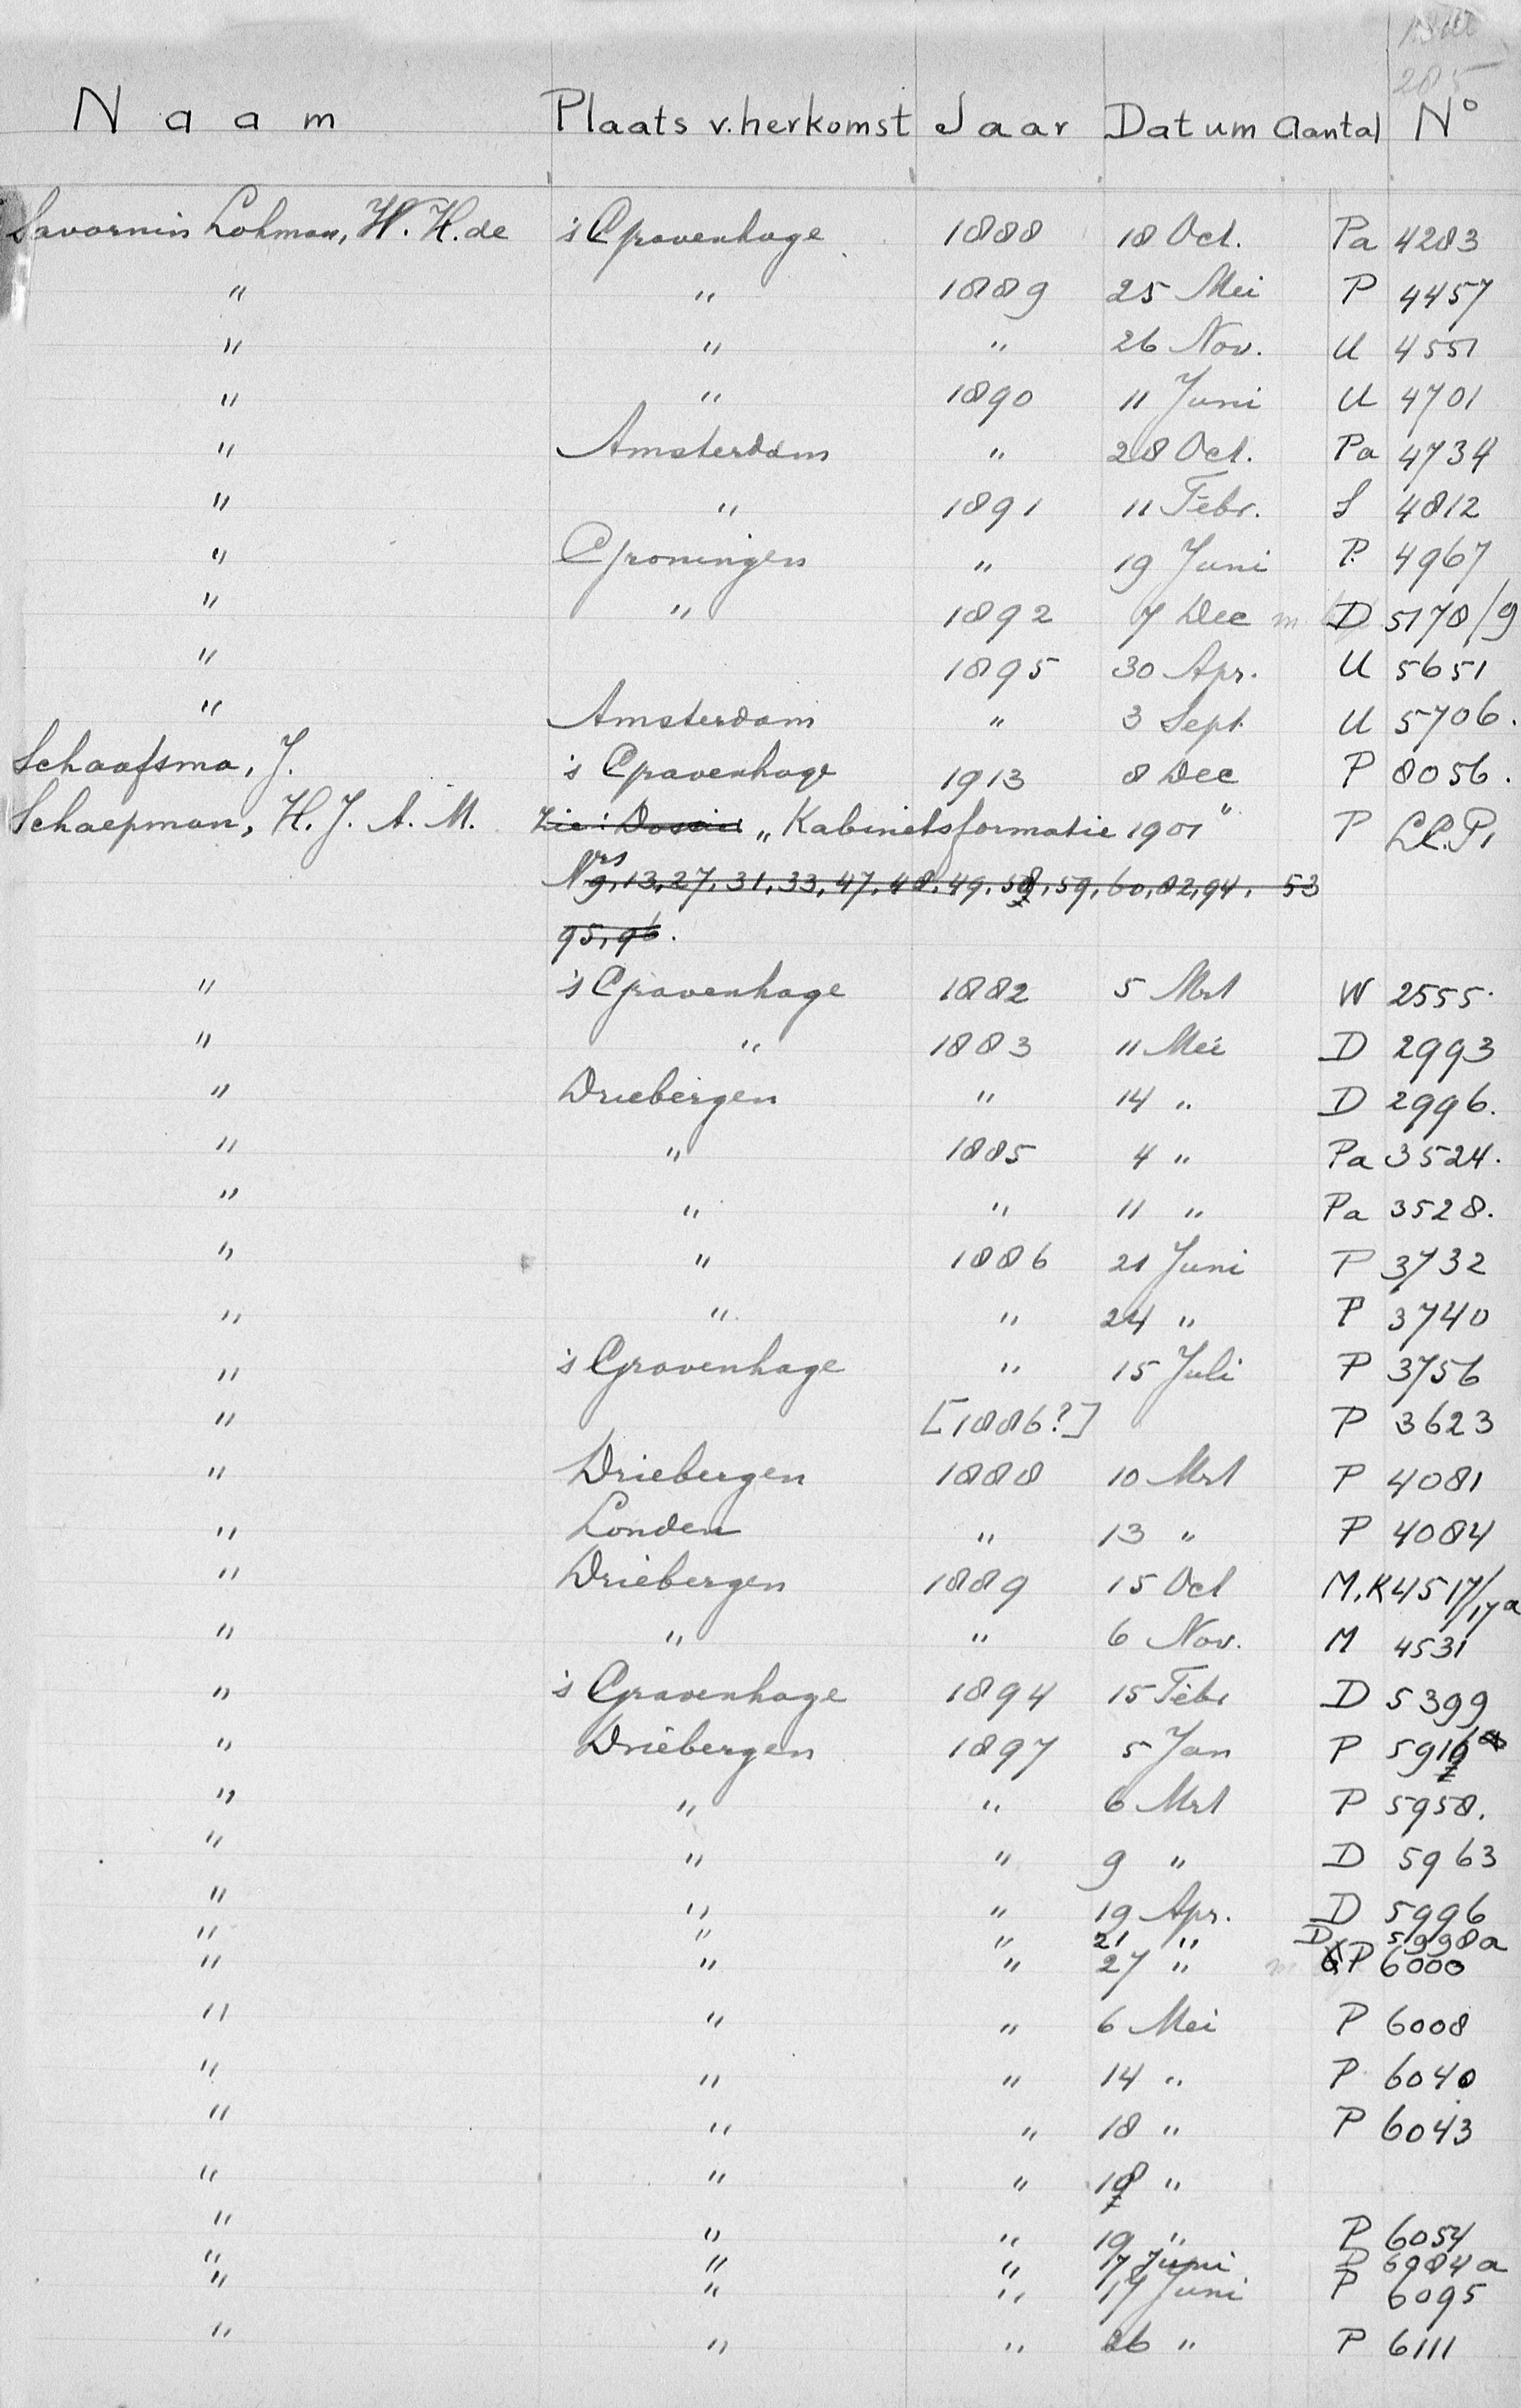 205
Naam Plaats v. herkomst Jaar Datum Aantal No
Savornin Lohman, W. H. de 's Gravenhage 1888 18 Oct. Pa 4283
" " 1889 25 Mei P 4457
" " " 26 Nov. U 4551
" " 1890 11 Juni U 4701
" Amsterdam " 28 Oct. Pa 4734
" " 1891 11 Febr. S 4812
" Groningen " 19 Juni P. 4967
" " 1892 7 Dec D 5178/9
" 1895 30 Apr. U 5651
" Amsterdam " 3 Sept. U 5706.
Schaafsma, J. 's Gravenhage 1913 8 Dec P 8056.
Schaepman, H. J. A. M. Zie: Dossier „Kabinetsformatie 1901" P
Nrs 9, 13, 27, 31, 33, 47, 48, 49, 58, 59, 60, 82, 94, 53
95, 96.
" 's Gravenhage 1882 5 Mrt W 2555.
" " 1883 11 Mei D 2993
" Driebergen " 14 " D 2996.
" " 1885 4 " Pa 3524.
" " " 11 " Pa 3528.
" " 1886 21 Juni P 3732
" " " 24 " P 3740
" 's Gravenhage " 15 Juli P 3756
" [1886?] P 3623
" Driebergen 1888 10 Mrt P 4081
" Londen " 13 " P 4084
" Driebergen 1889 15 Oct M, K 4517/17a
" " " 6 Nov. M 4531
" 's Gravenhage 1894 15 Febr D 5399
" Driebergen 1897 5 Jan P
" " " 6 Mrt P 5958.
" " " 9 " D 5963
" " " 19 Apr. D 5996
" " " 21 " D 5998a
" " " 27 " P 6000
" " " 6 Mei P 6008
" " " 14 " P 6040
" " " 18 " P 6043
" " " 18 "
" " " 19 " P 6054
" " " 17 Juni P 6984a
" " " 17 Juni P 6095
" " " 26 " P 6111